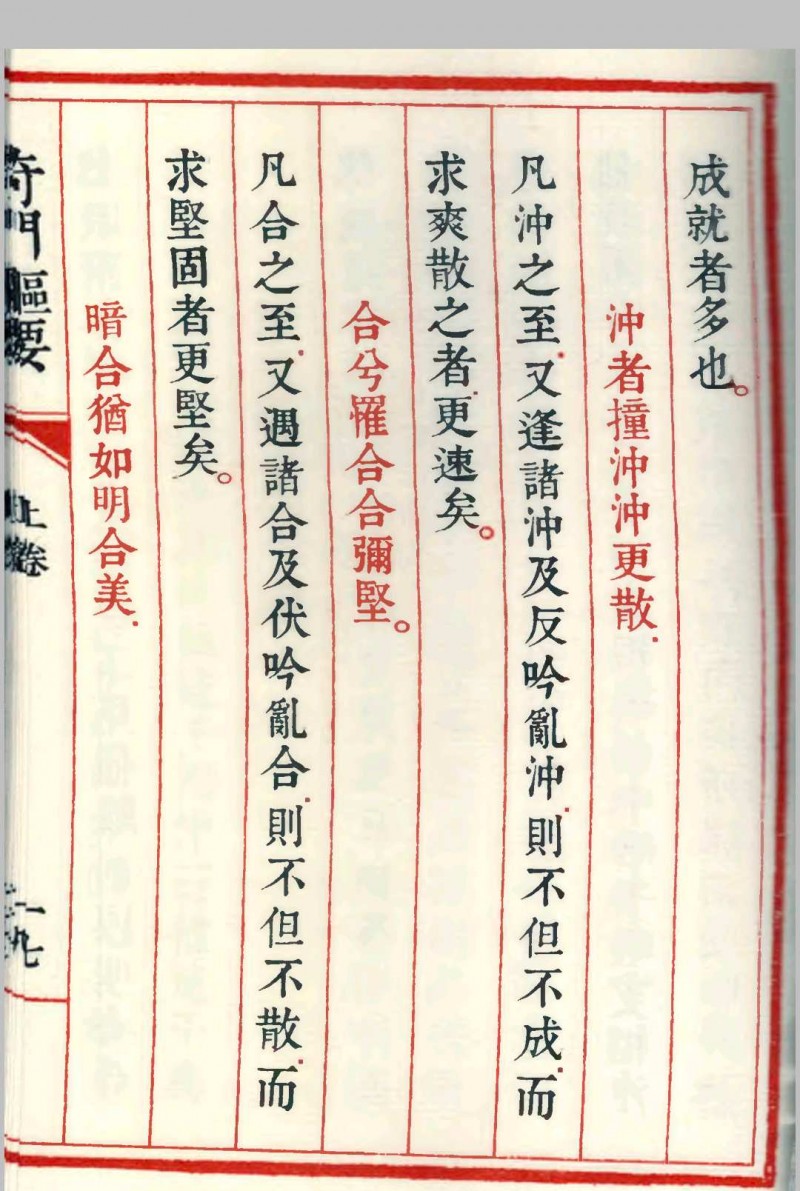 成就者多也。
沖者撞沖沖更散.
凡沖之至.又逢諸沖及反吟亂沖.則不但不成.而
求爽散之者.更速矣。
合兮罹合合彌堅。
凡合之至.又遇諸合及伏吟亂合.則不但不散.而
求堅固者更堅矣。
暗合猶如明合美.
奇門樞要
上卷